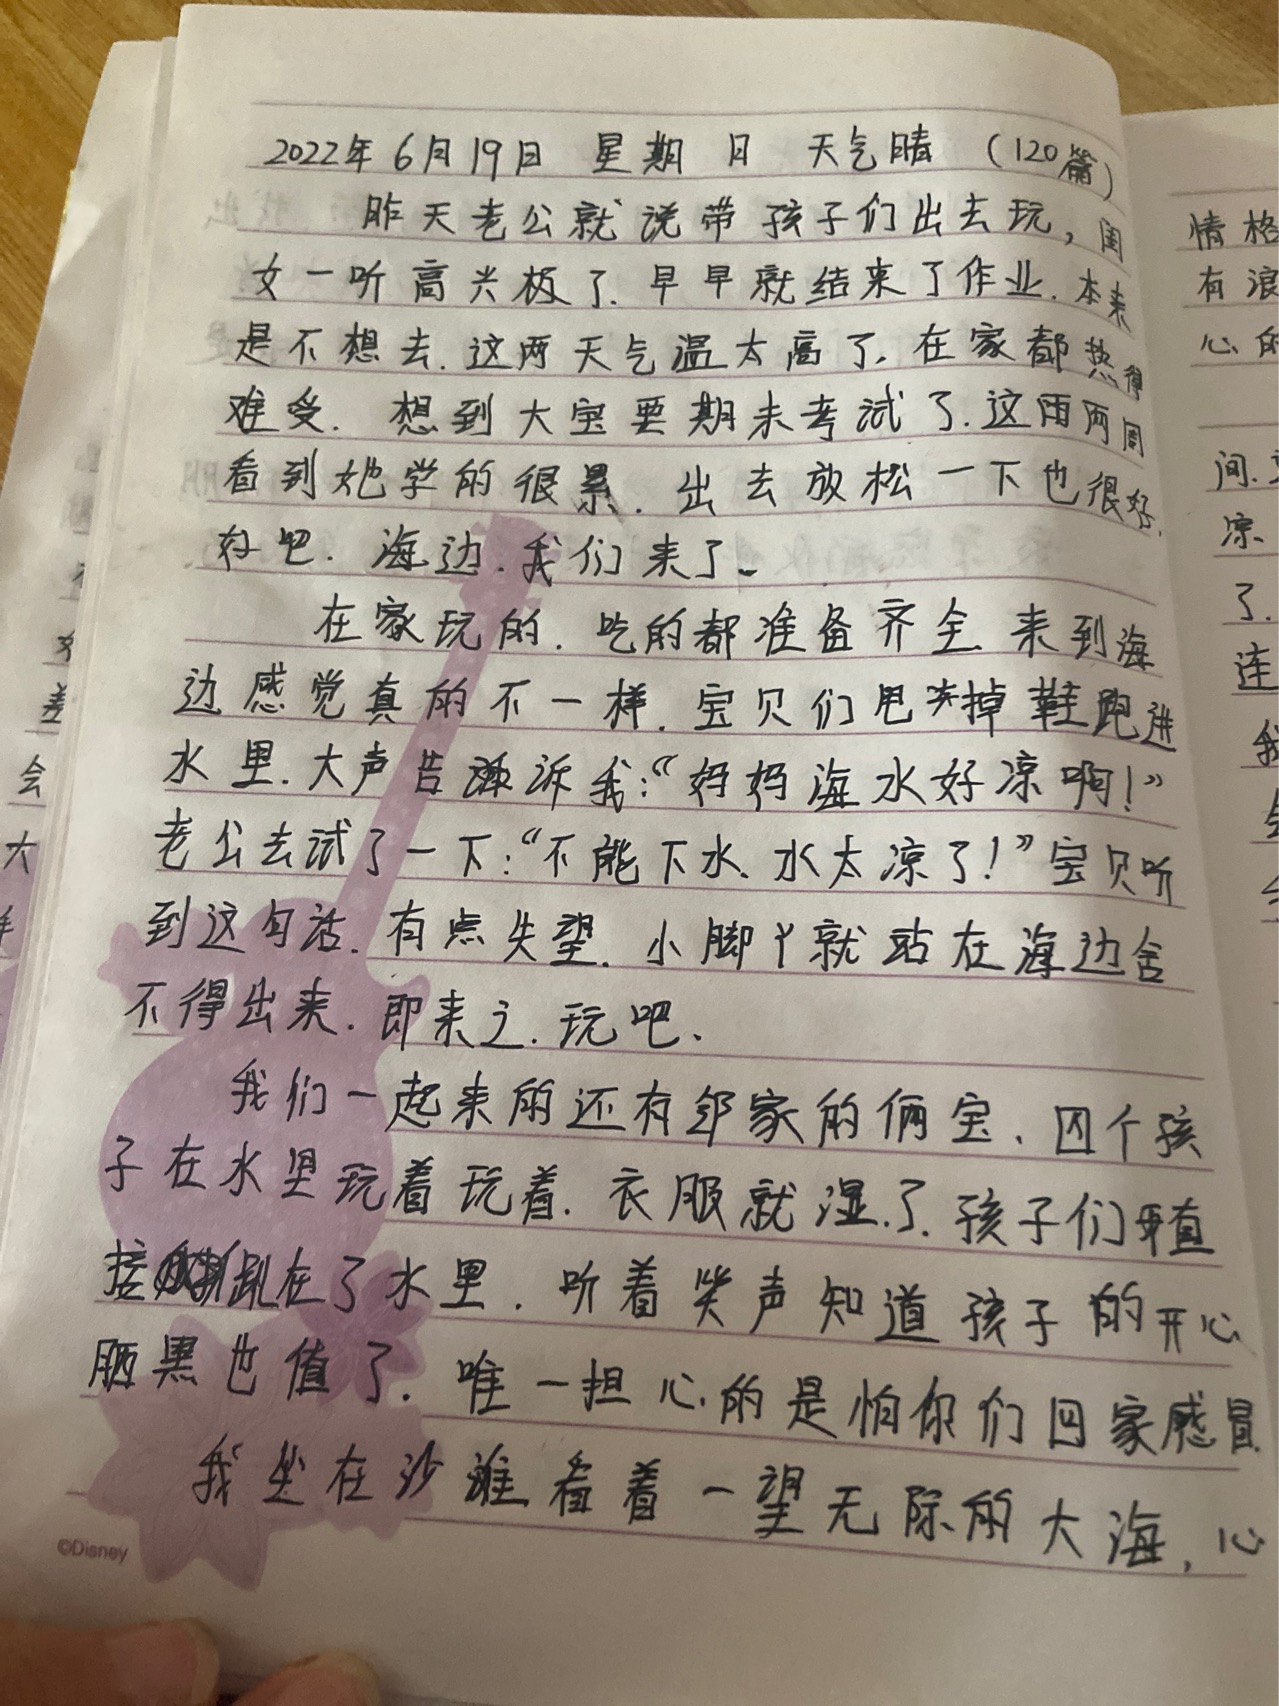 2022年6月19日 星期日 天气晴 (120篇)
昨天老公就说带孩子们出去玩,闺
女一听高兴极了.早早就结束了作业.本来
是不想去.这两天气温太高了.在家都热得
难受.想到大宝要期未考试了.这两周
看到她学的很累.出去放松一下也很好.
好吧.海边.我们来了.
在家玩的.吃的都准备齐全.来到海
边感觉真的不一样.宝贝们甩掉鞋跑进
水里.大声告诉我:“妈妈海水好凉啊!”
老公去试了一下:“不能下水.水太凉了!”宝贝听
到这句话.有点失望.小脚丫就站在海边舍
不得出来.即来之.玩吧.
我们一起来的还有邻家的俩宝、四个孩
子在水里玩着玩着.衣服就湿了.孩子们直
接趴在了水里.听着笑声知道孩子的开心
晒黑也值了.唯一担心的是怕你们回家感冒.
我坐在沙滩看着一望无际的大海,心
©Disney
情格
有浪
心的
间.
凉
了.
连
我
差
会
大